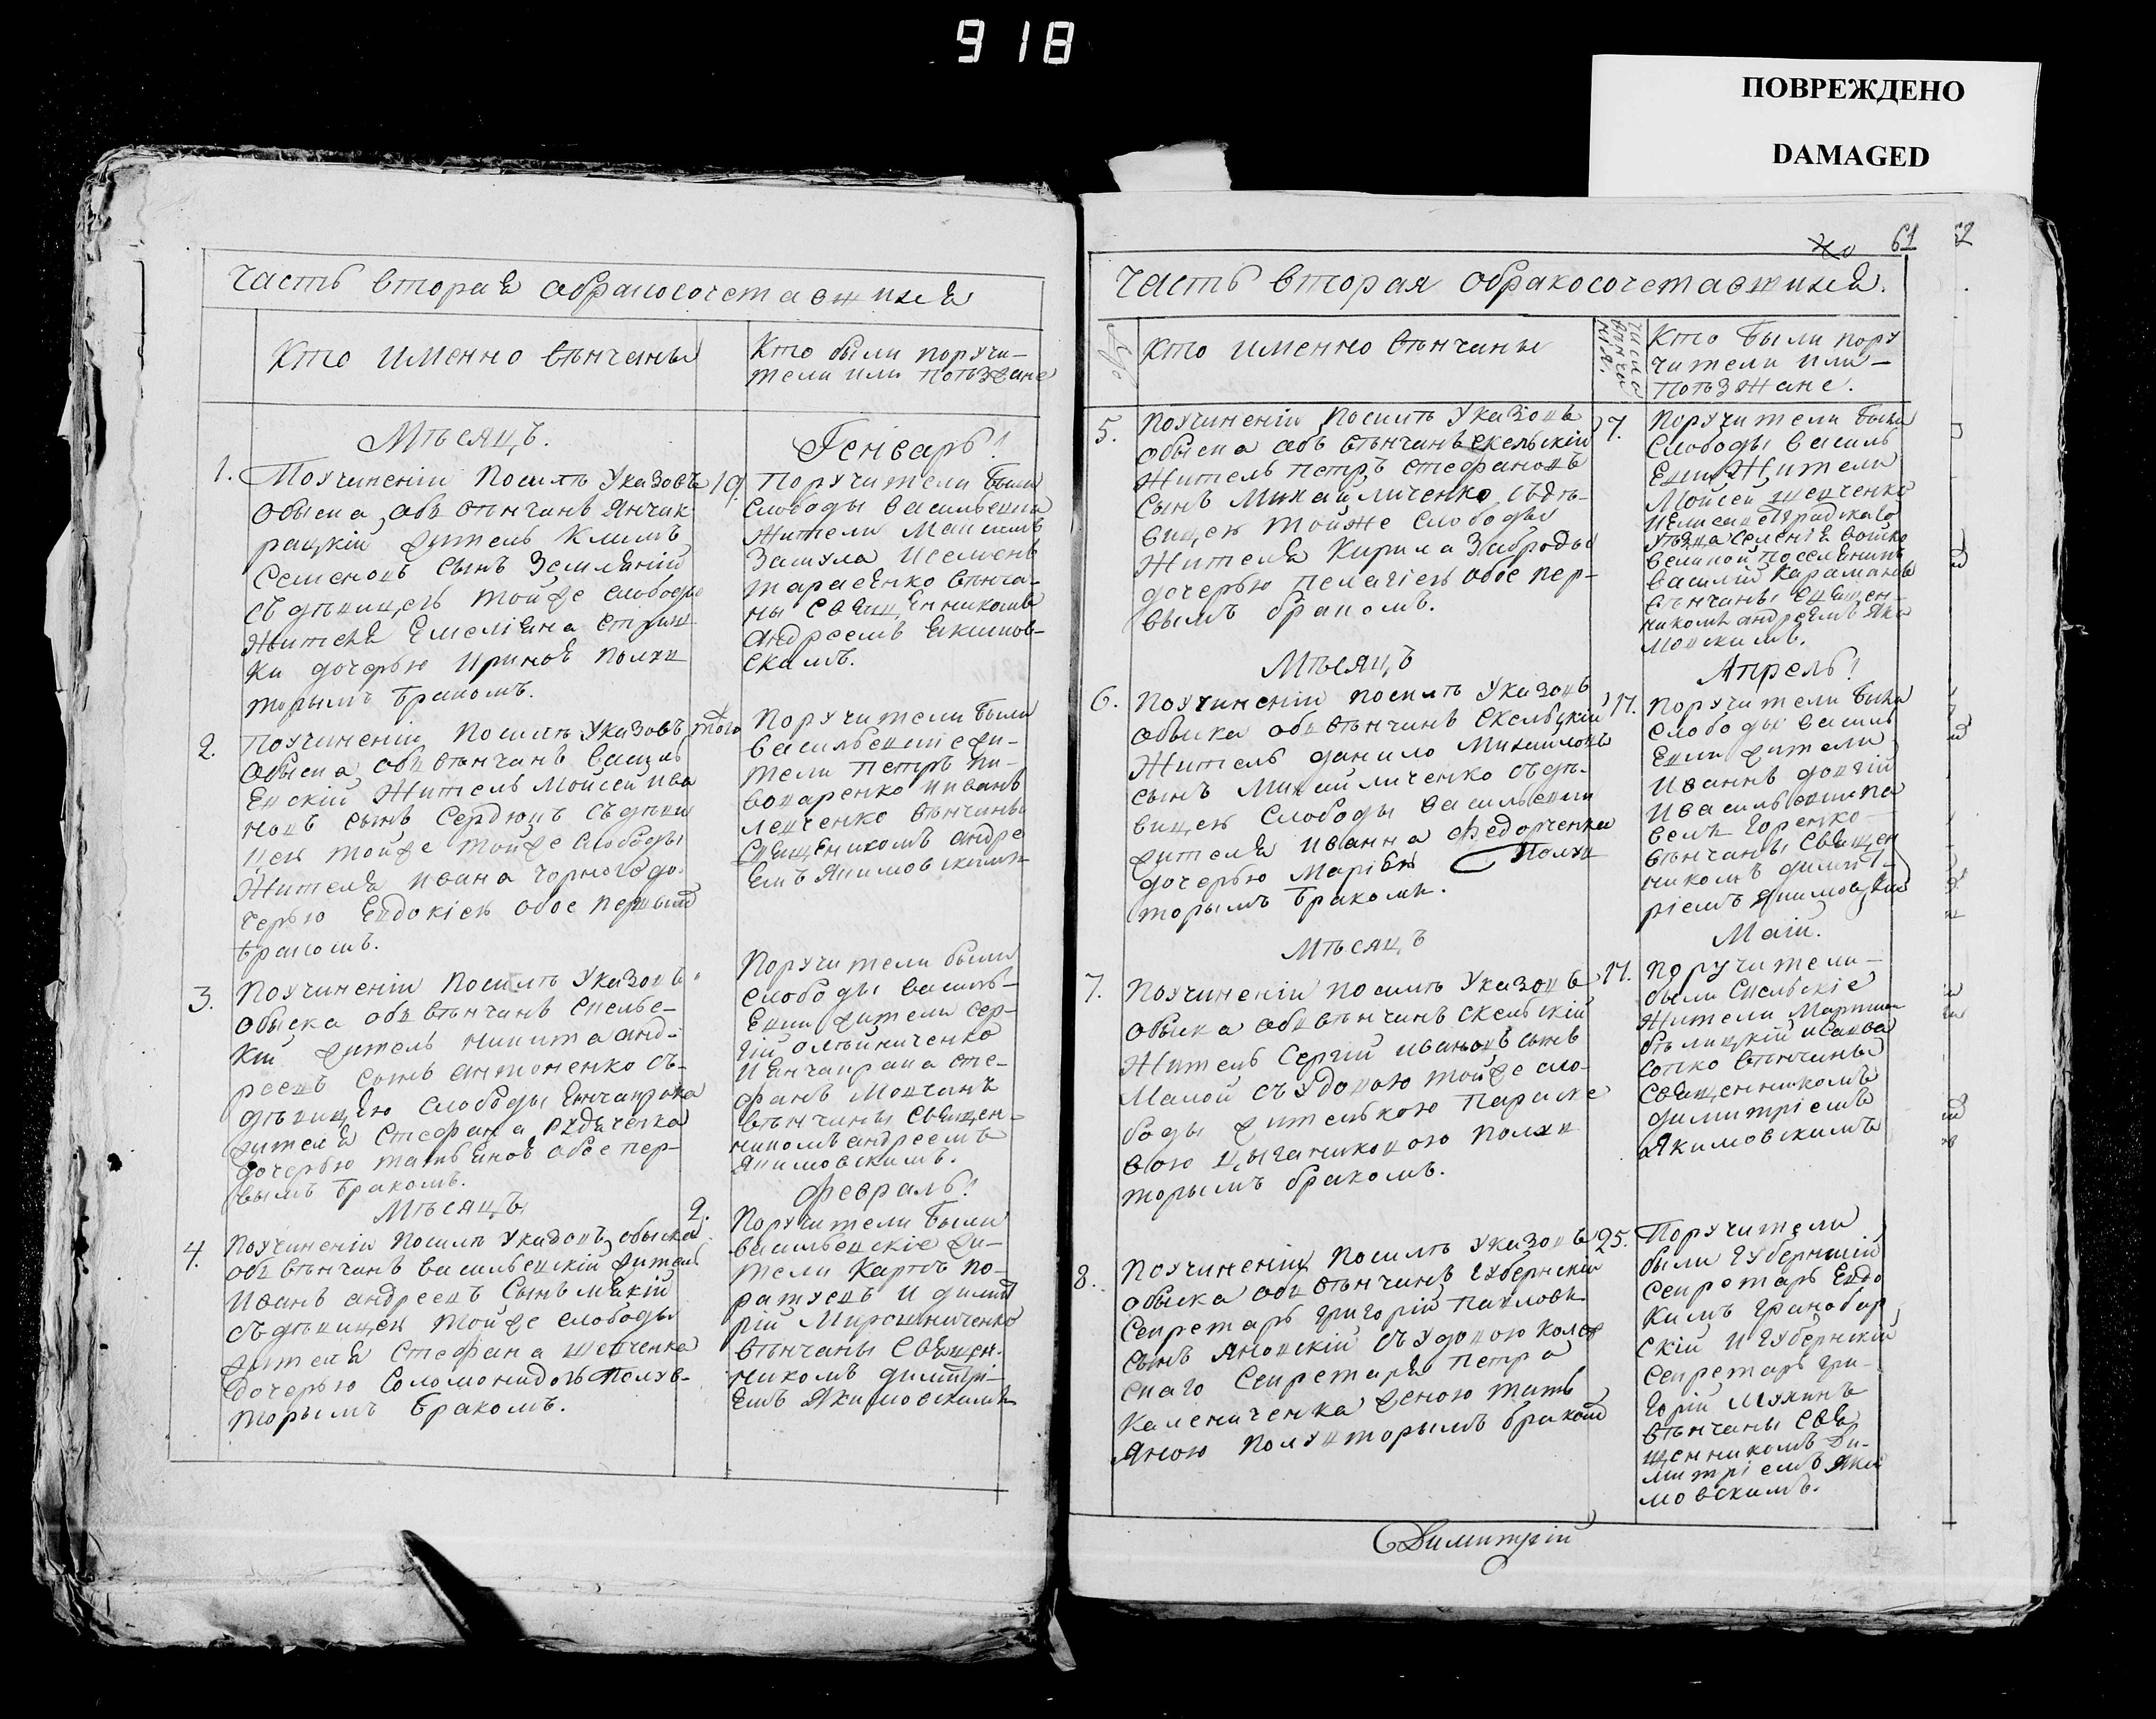 918
ПОВРЕЖДЕНО
DAMAGED
часть вторая обракосочетавшихся
Кто именно вѣнчаны
Кто были поручи-
тели или поѣзжане
Мѣсяцъ.
Генварь!
1. Поучиненіи посилѣ Указовъ
обыска, обвѣнчанъ Янчик
рацкій житель Климъ
Семеновъ сынъ
съ дѣвицею тойже слободы
жителя Емеліяна
ки дочерью Ириною полув
торымъ бракомъ.
19. Поручители были
слободы Васильевки
жители
Иосеменъ
тарасенко вѣнча-
ны священникомъ
андреемъ Екимов-
скимъ.
2. Поучиненіи посилѣ указовъ
обыска, обвѣнчанъ василь
евскій житель Мойсей ива
новъ сынъ Сердюкъ съдѣви
цею тойже тойже слободы
жителя ивана Чорного до-
черью Евдокіею обое первымъ
бракомъ.
того
Поручители были
васильевскіе жи-
тели петръ пи-
воваренко ииванъ
левченко вѣнчаны
священникомъ андре
емъ Якимовскимъ
3. Поучиненіи посилѣ Указовъ
обыска обвѣнчанъ скельс-
кій житель никита анд-
реевъ сынъ антоненко съ-
дѣвицею слободы Енчакрака
жителя Стефана Рудченка
дочерью татьяною обое пер-
вымъ бракомъ.
Поручители были
слободы василь-
евки жители сер-
гій олѣйниченко
иЕнчакрака сте-
фанъ Мовчанъ
вѣнчаны священ-
никомъ андреемъ
Якимовскимъ.
Мѣсяцъ
февраль!
4. Поучиненіи посилѣ Указовъ обыска
обвѣнчанъ васильевскій житель
Иванъ андреевъ Сынъ
съдѣвицею тойже слободы
жителя Стефана шевченка
дочерью Соломонидою полув-
торымъ бракомъ.
2. Поручители были
васильевскіе жи-
тели Карпъ по-
ратуевъ и димит
рій Мирошниченко
вѣнчаны священ-
никомъ димитрі-
емъ Якимовскимъ
61
часть вторая обракосочетавшихся.
Кто именно вѣнчаны
Кто были пору
чители или-
поѣзжане.
5. Поучиненіи посилѣ Указовъ
обыска обвѣнчанъ скельскій
житель петръ стефановъ
сынъ Михайличенко, съдѣ-
вицею тойже слободы
жителя Кирила Заброды
дочерью пелагіею обое пер-
вымъ бракомъ.
7. Поручители были
слободы василь
евки жители
Мойсей шевченко
уѣзда
василій Караманъ
вѣнчаны священ-
никомъ андреемъ Яки
мовскимъ.
Мѣсяцъ
Апрель!
6. Поучиненіи посилѣ Указовъ
обыска обвѣнчанъ скельскій
житель данило михайловъ
сынъ Михайличенко съдѣ-
вицею слободы васильевки
жителя иванна Федорченка
дочерью Маріею Полув
торымъ бракомъ.
17. Поручители были
слободы василь
евки жители
Иваннъ долгій
ивасильевки па
велъ Горенко
вѣнчаны священ
никомъ димит
ріемъ Якимовским
Мѣсяцъ
Маій.
7. Поучиненіи посилѣ указовъ
обыска обвѣнчанъ скельскій
житель Сергій ивановъ сынъ
Малой съ удовою тойже сло-
боды жителькою Параске
вою цыганиковою полув
торымъ бракомъ.
17. поручители-
были скельскіе
жители Мартин
бѣлицкій исавва
сотко вѣнчаны
священникомъ
димитріемъ
Якимовскимъ
8. Поучиненіи посилѣ указовъ
обыска обвѣнчанъ Губернскій
Секретарь Григорій павловъ
сынъ Яновскій съ удовою колеж
скаго Секретаря петра
Калениченка женою тать
яною полувторымъ бракомъ
25. Поручители
были губернскій
Секретарь Евдо
кимъ
скій и Губернскій
Секретарь Гри-
горій Мухинъ
вѣнчаны свя
щенникомъ Ди-
митріемъ Яки
мовскимъ.
Димитрій